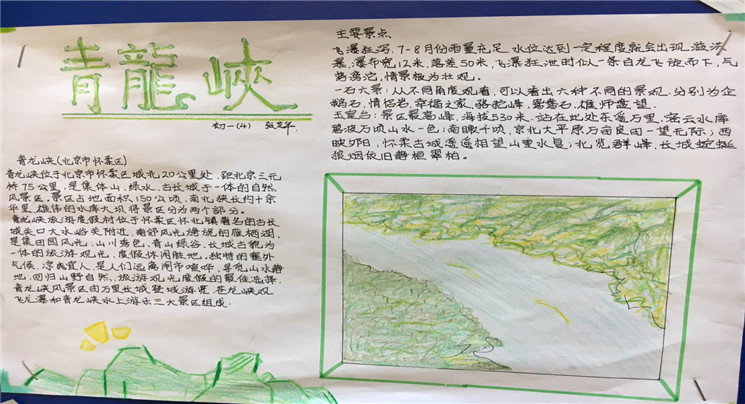 青龍峽
初一(4)
青龙峡(北京市怀柔区)
青龙峡位于北京市怀柔区城北20公里处,距北京三元
桥75公里,是集体山,绿水,古长城于一体的自然
风景区,景区占地面积150公顷,南北峡长约十余
华里,雄伟的水库大坝将景区分为两个部分。
青龙峡旅游度假村位于怀柔区怀北镇著名的古长
城关口大水峪关附近,南邻风光旖旎的雁栖湖,
是集田园风光,山川秀色,青山绿谷,长城古貌为
一体的旅游观光,度假休闲胜地,独特的塞外
气候,凉爽宜人,是人们远离闹市喧哗,寻觅山水静
地,回归山野自然,旅游观光度假的最佳选择,
青龙峡风景区由万里长城登城游览,苍龙峡观
飞龙瀑和青龙峡水上游乐三大景区组成.
主要景点
飞瀑狂泻,7-8月份雨量充足,水位达到一定程度就会出现溢洪
瀑,瀑布宽12米,落差50米,飞瀑狂泄时似一条白龙飞旋而下,气
势磅沱,情景极为壮观。
一石六景:从不同角度观看,可以看出六种不同的景观,分别为企
鹅石,情侣岩,幸福之家,骆驼峰,鸳鸯石,雄狮遥望.
景区最高峰,海拔530米,站在此处东遥万里,密云水库
碧波万顷山水一色;南眺千顷,京北大平原万亩良田一望无际;西
映夕阳,怀柔古城遥遥相望山重水复;北览群峰,长城蜿蜒
狼烟依旧静植翠柏。